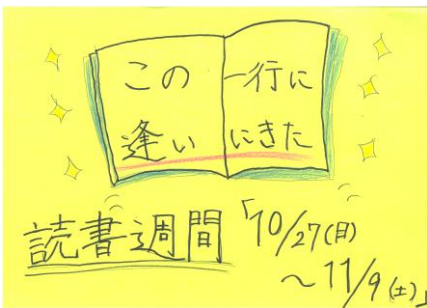 この一行に
逢いにきた
読書週間「10/27(月)
～11/9(土)」